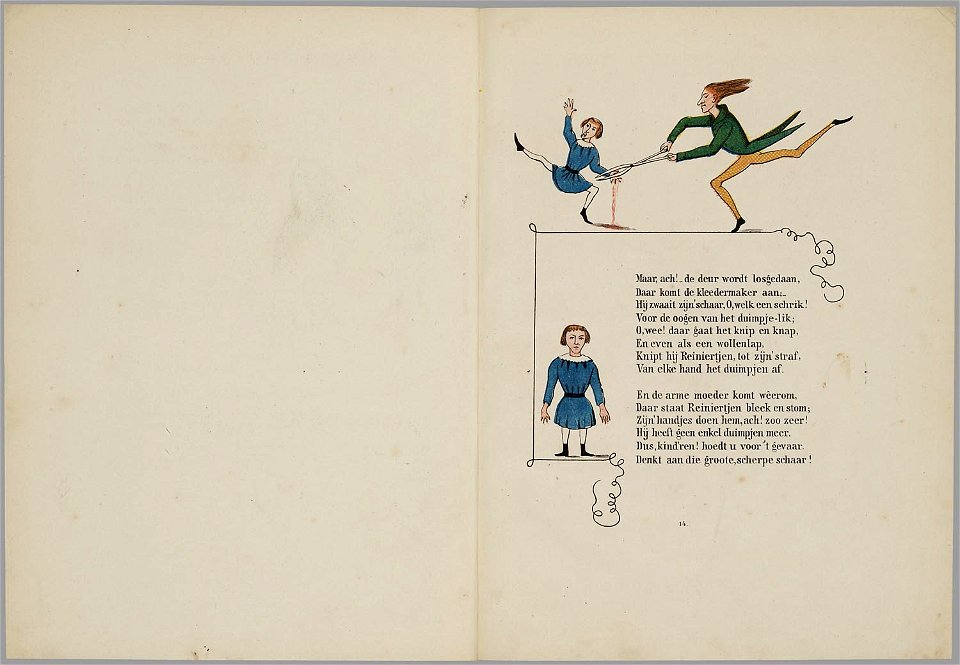 Maar, ach!_ de deur wordt losgedaan,
Daar komt de kleedermaker aan;_
Hij zwaait zijn' schaar, O, welk een schrik!
Voor de oogen van het duimpje-lik;
O, wee! daar gaat het knip en knap,
En even als een wollenlap,
Knipt hij Reiniertjen, tot zijn' straf,
Van elke hand het duimpjen af.
En de arme moeder komt wêerom,
Daar staat Reiniertjen bleek en stom;
Zijn' handjes doen hem, ach! zoo zeer!
Hij heeft geen enkel duimpjen meer.
Dus, kind'ren! hoedt u voor 't gevaar.
Denkt aan die groote, scherpe schaar!
14.